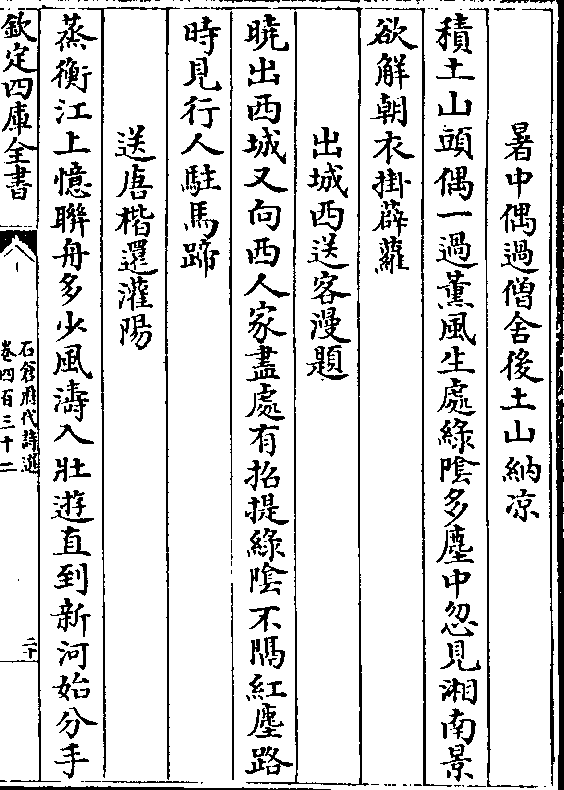 暑中偶過僧舍後土山納凉
積土山頭偶一過薫風生處綠陰多塵中忽見湘南景
欲解朝衣掛薜蘿
出城西送客漫題
曉出西城又向西人家盡處有招提綠陰不隔紅塵路
時見行人駐馬蹄
送唐楷還灌陽
蒸衡江上憶聨舟多少風濤入壯遊直到新河始分手
欽定四庫全書
石倉歴代詩選
卷四百三十二
二十